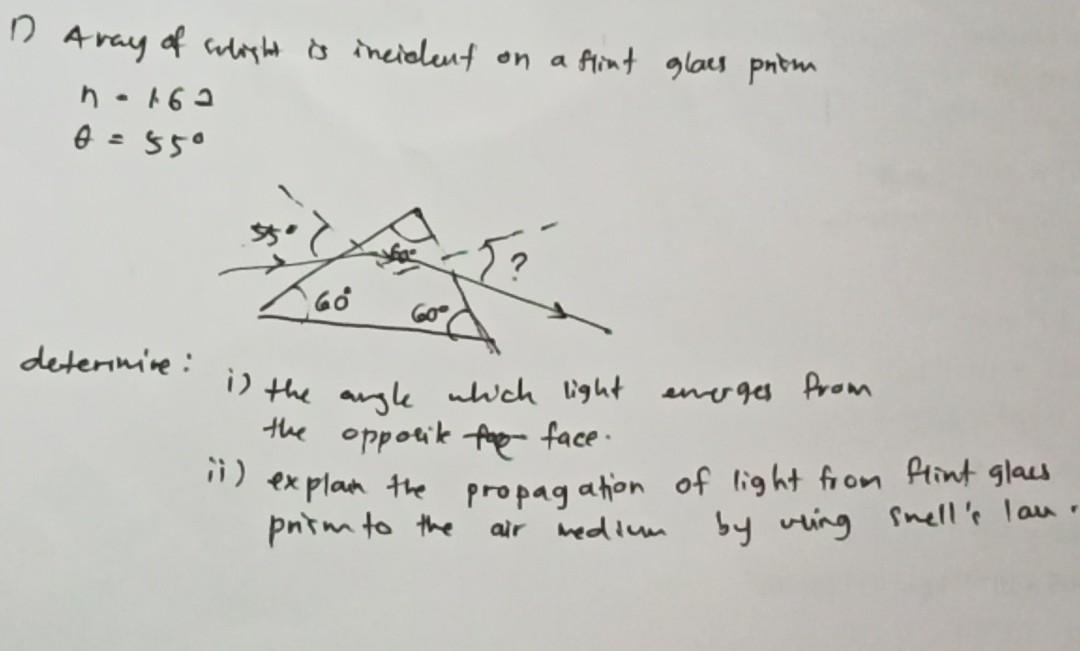 1) A ray of light is incident on a flint glass prism
n = 1.62
θ = 55°
55°
60°
?
60°
60°
determine:
i) the angle which light emerges from
the opposite face.
ii) explain the propagation of light from flint glass
prism to the air medium by using snell's law.